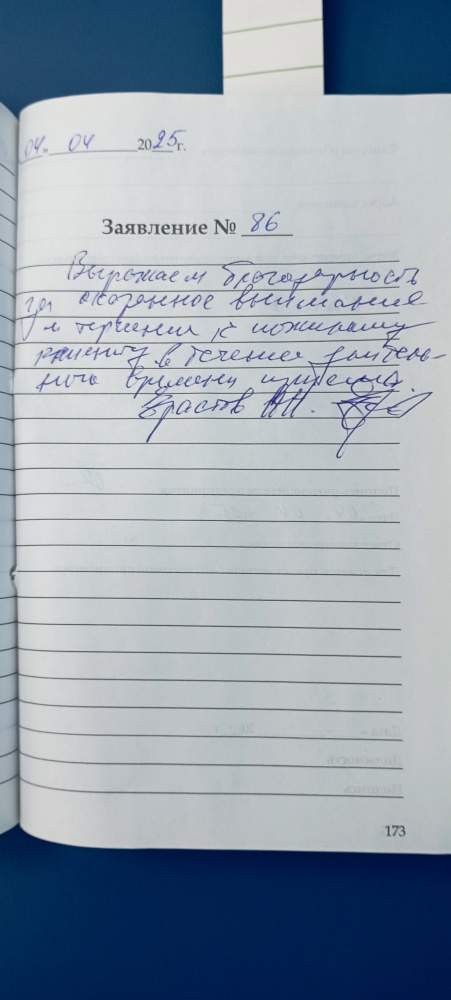 04 04 2025 г.
Заявление № 86
Выражаем благодарность
за оказанное внимание
и терпении к пожилому
пациенту в течении длитель-
ного времени приема.
Ерастов
173